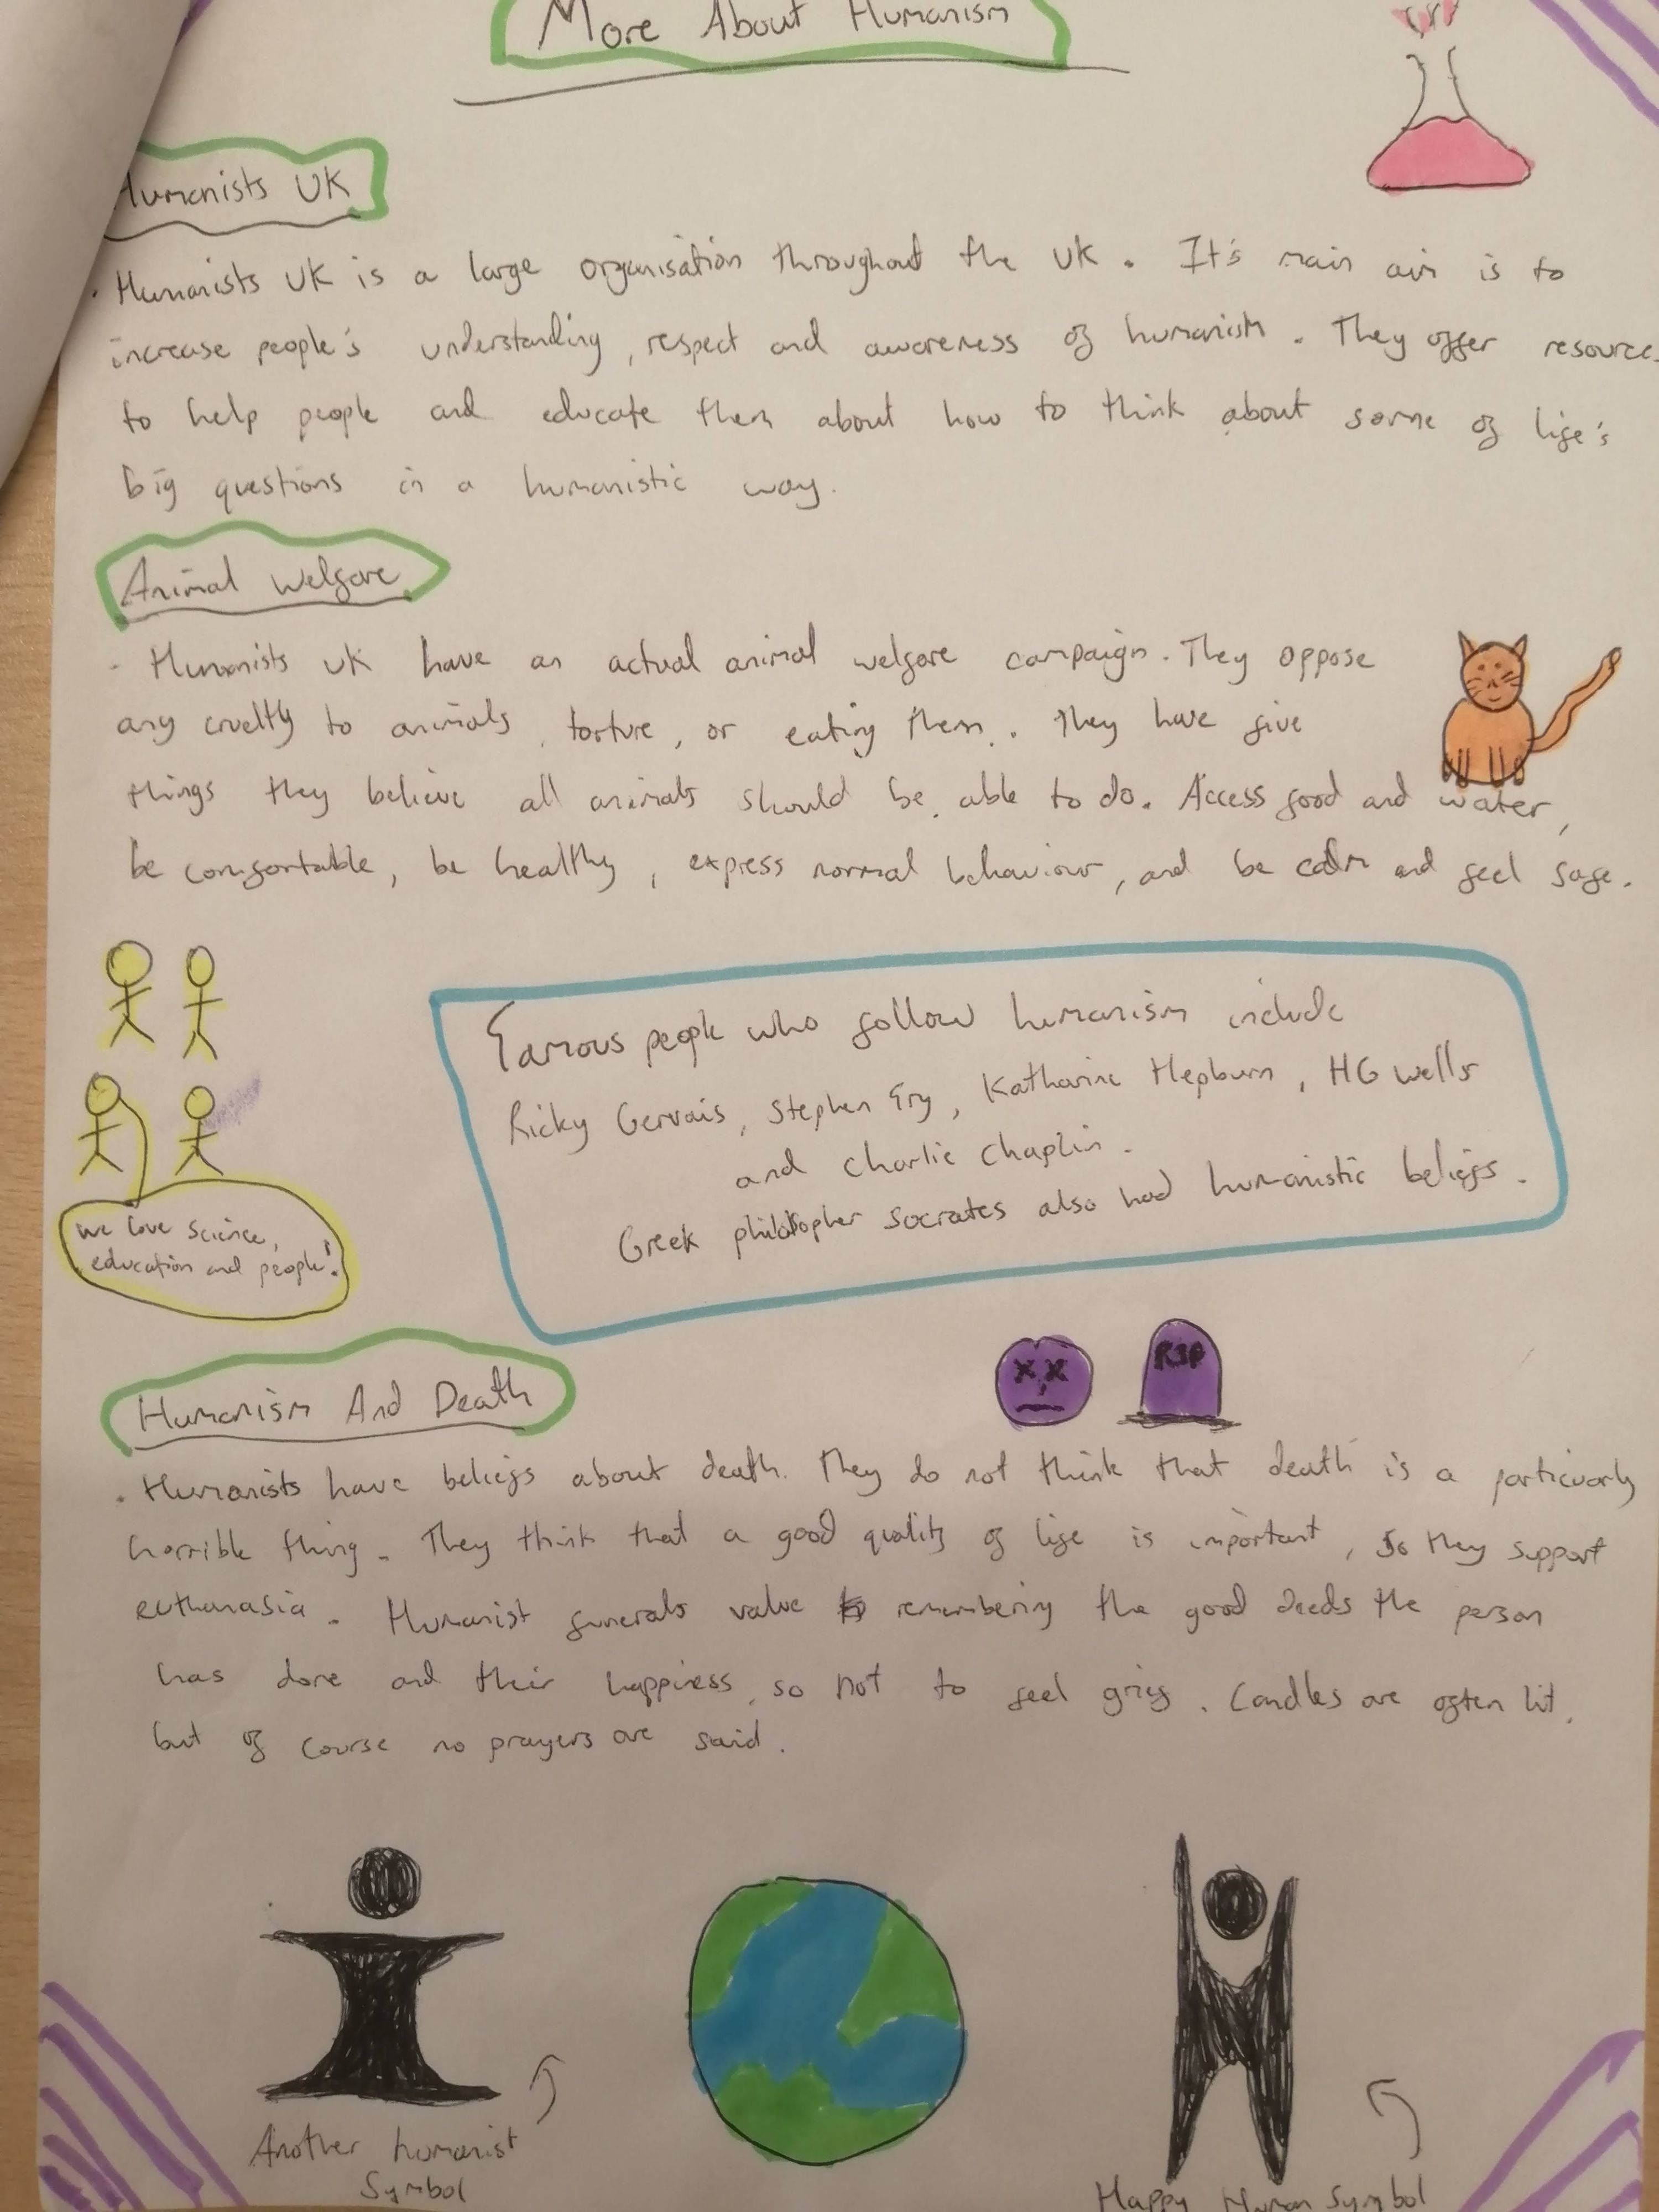 More About Humanism
Humanists UK
· Humanists UK is a large organisation throughout the UK. It's main aim is to
increase people's understanding, respect and awareness of humanism. They offer resource
to help people and educate them about how to think about some of life's
big questions in a humanistic way.
Animal Welfare
- Humanists UK have an actual animal welfare campaign. They oppose
any cruelty to animals, torture, or eating them. They have five
things they believe all animals should be able to do. Access food and water,
be comfortable, be healthy, express normal behaviour, and be calm and feel safe.
Famous people who follow humanism include
Ricky Gervais, Stephen Fry, Katharine Hepburn, HG Wells
and Charlie Chaplin.
Greek philosopher Socrates also had humanistic beliefs.
We love science,
education and people!
RIP
Humanism And Death
· Humanists have beliefs about death. They do not think that death is a particuarly
horrible thing. They think that a good quality of life is important, so they support
euthanasia. Humanist funerals value remembering the good deeds the person
has done and their happiness, so not to feel grief. Candles are often lit,
but of course no prayers are said.
Another humanist
Symbol
Happy Human Symbol